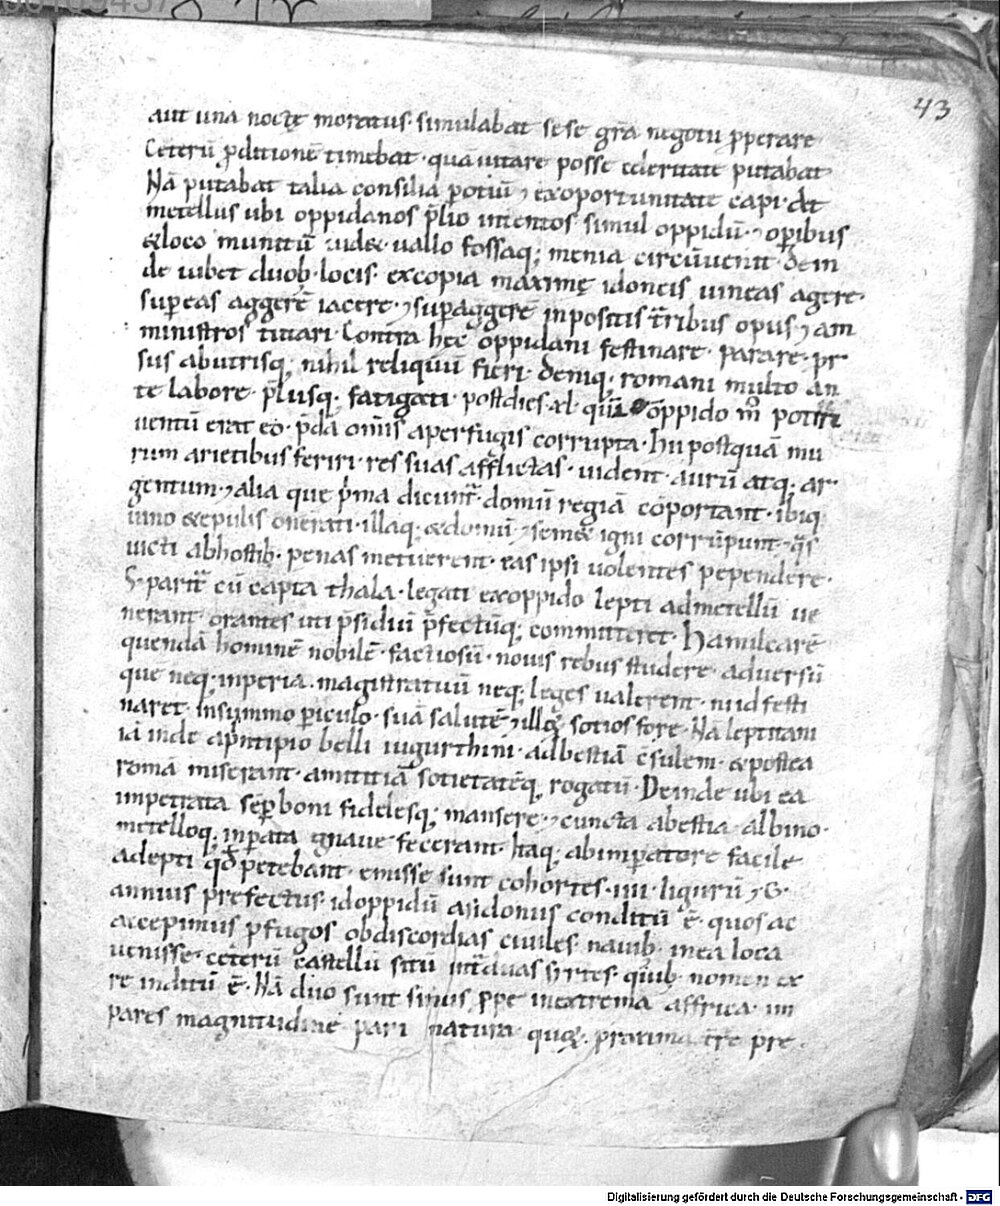 43
aut una nocte moratus· simulabat sese gr̄a negotii ꝓperare
Ceterū ꝓditionē timebat· quā uitare posse celeritate putabat
Nā putabat talia consilia ꝑotiū ⁊ exoportunitate capi· At
metellus ubi oppidanos p̄lio intentos simul oppidū· ⁊ oꝑibus
&loco munitū uid&· uallo fossaq; menia circūuenit· dein
de iubet duob; locis· excopia maximę idoneis uineas agere·
suꝑeas aggerē iacere· ⁊ suꝑaggerē inpositis t̄rribus opus ⁊ am
ministros tutari· Contra hęc oppidani festinare· parare· pr
sus abutrisq; nihil reliquū fieri· deniq; romani multo an
te labore· p̄liisq; fatigati· postdies·xl· quā oppido m̄ potiti
uentū erat eo· p̄da om̄is aperfugis corrupta· Hii postquā mu
rum arietibus feriri· res suas afflictas· uident· aurū atq; ar
gentum· ⁊ alia que p̄ma dicunt̄· domū regiā cōportant· ibiq;
uino &epulis onerati· illaq; &domū ⁊ sem& igni corrūpunt· q̄s
uicti abhostib; penas metuerent· eas ipsi uolentes pependere·
S; parit̄ cū capta thala· legati exoppido lepti admetellū ue
nerant· orantes uti p̄sidiū p̄fectūq; committeret· Hamilcarē
quendā hominē nobilē· factiosū· nouis rebus studere· aduersū
que neq; inperia magistratuū neq; leges ualerent· niid festi
naret· insummo ꝑiculo· suā salutē ⁊ illoꝝ sotios fore· Nā leptitani
iā inde ap̄ntipio belli iugurthini· adbestiā c̄sulem· &postea
romā miserant· amititiā sotietatēq; rogatū· Deinde ubi ea
impetrata sēꝑ boni fidelesq; mansere· ⁊ cuncta abestia albino·
metelloq; inꝑata gnaue fecerant· Itaq; abinperatore facile
adepti qđ petebant· emisse sunt cohortes· iiii· ligurū ⁊ G·
annius prefectus· idoppidū asidoniis conditū ē· quos ac
accepimus ꝓfugos obdiscordias ciuiles· nauib; inea loca
uenisse· ceterū castellū sitū int̄duas syrtes· quib; nomen ex
re inditū ē· Nā duo sunt sinus ꝓpe inextrema affrica· im
pares magnitudine· pari natura· quoꝝ· proxima t̄re pre
Digitalisierung gefördert durch die Deutsche Forschungsgemeinschaft - DFG